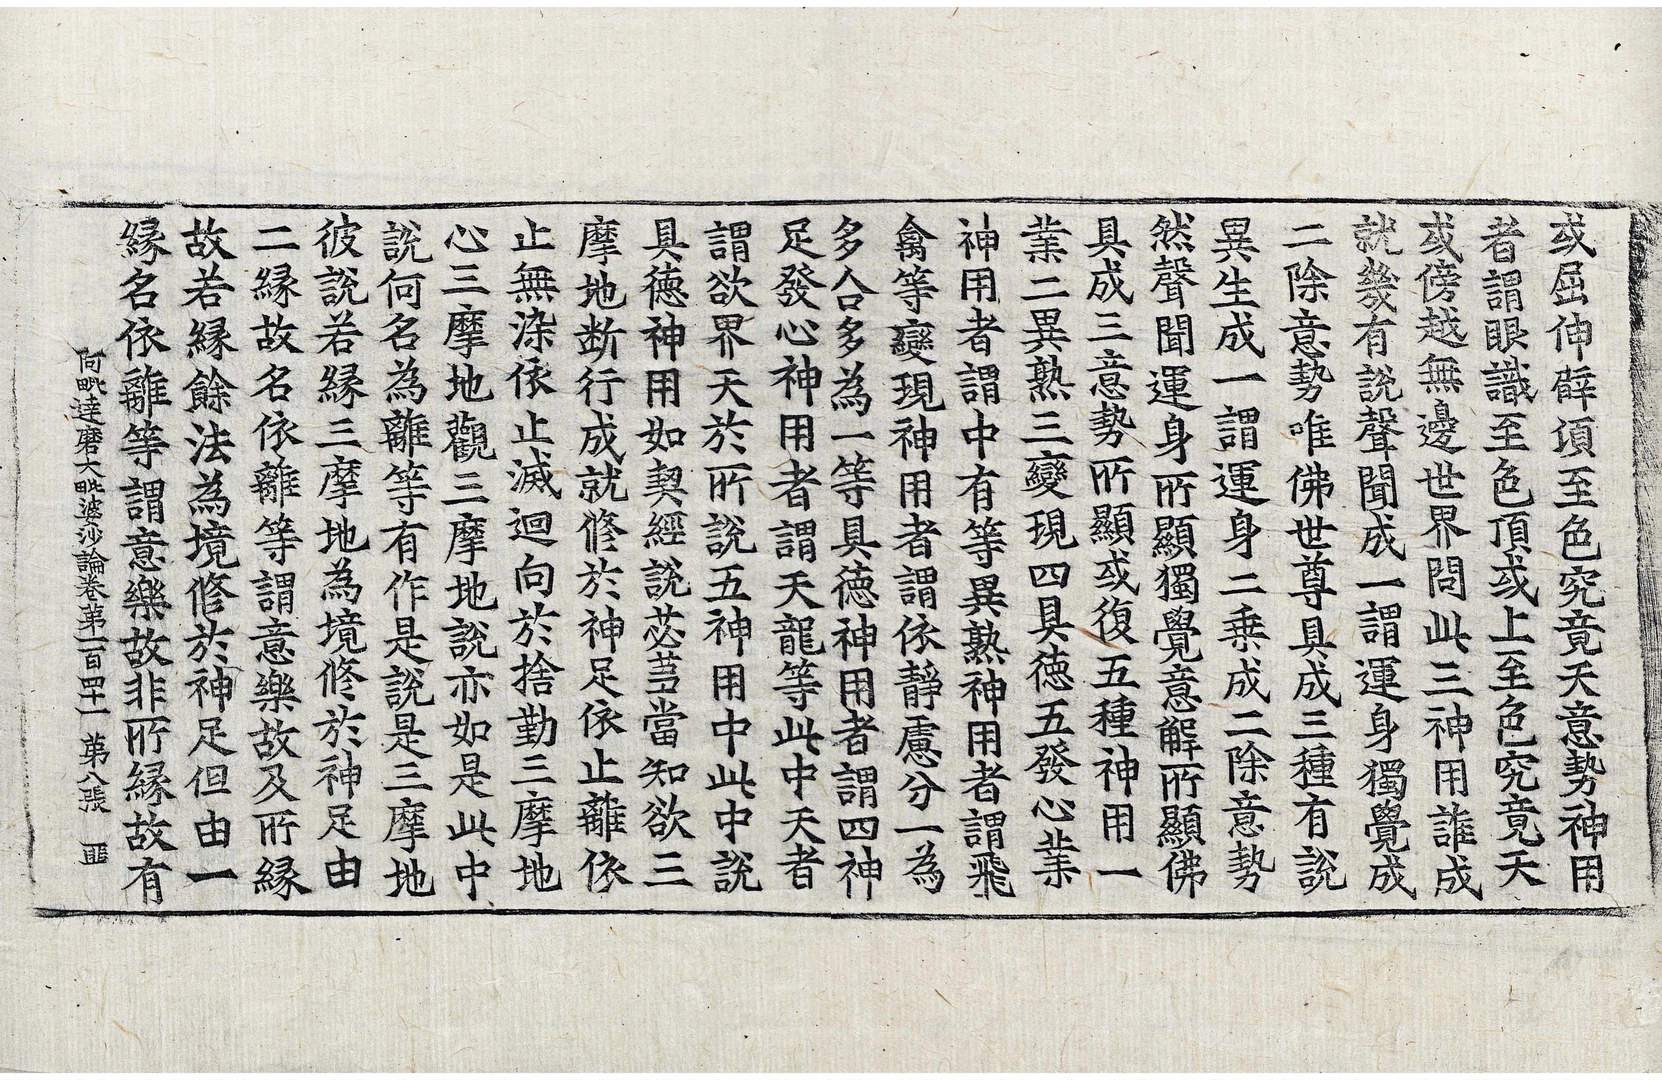 或屈伸臂頃至色究竟天意勢神用
者謂眼識至色頂或上至色究竟天
或傍越無邊世界問此三神用誰成
就幾有說聲聞成一謂運身獨覺成
二除意勢唯佛世尊具成三種有說
異生成一謂運身二乘成二除意勢
然聲聞運身所顯獨覺意解所顯佛
具成三意勢所顯或復五種神用一
業二異熟三變現四具德五發心業
神用者謂中有等異熟神用者謂飛
禽等變現神用者謂依靜慮分一為
多合多為一等具德神用者謂四神
足發心神用者謂天龍等此中天者
謂欲界天於所說五神用中此中說
具德神用如契經說苾芻當知欲三
摩地断行成就修於神足依止離依
止無染依止滅迴向於捨勤三摩地
心三摩地觀三摩地說亦如是此中
說何名為離等有作是說是三摩地
彼說若緣三摩地為境修於神足由
二緣故名依離等謂意樂故及所緣
故若緣餘法為境修於神足但由一
緣名依離等謂意樂故非所緣故有
阿毗達磨大毗婆沙論卷第一百四十一 第八張 匪